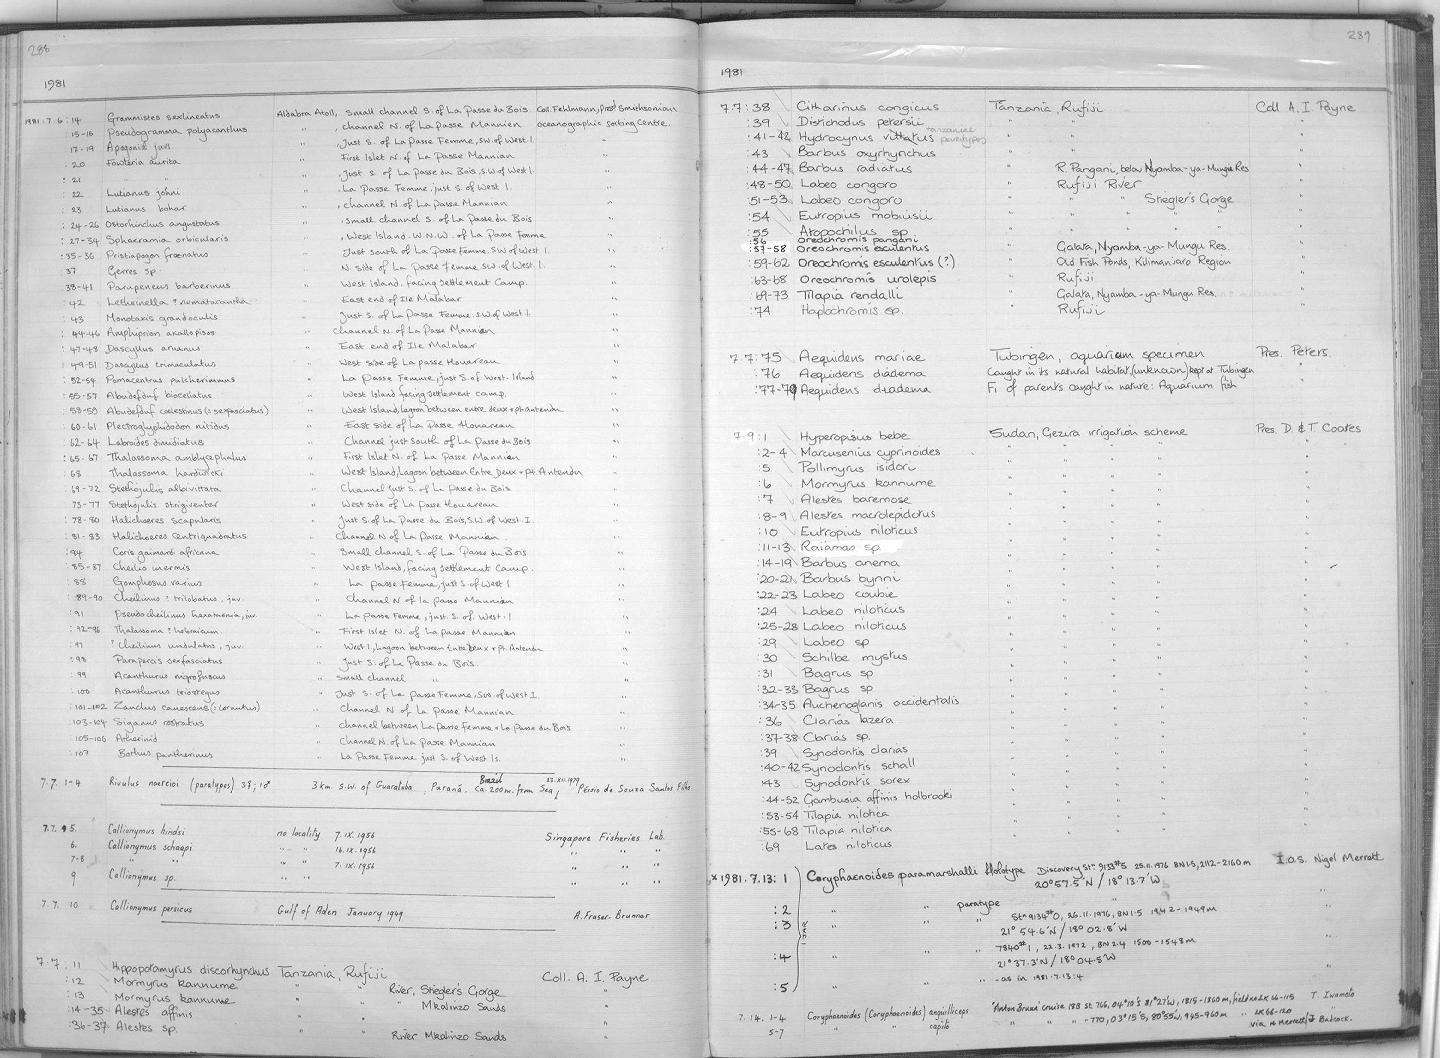 288
1981
1981.7.6:14 Grammistes sexlineatus Aldabra Atoll, small channel S. of La Passe du Bois Coll. Fehlmann, Pres. Smithsonian
15-16 Pseudogramma polyacanthus " , channel N. of La Passe Mannien oceanographic sorting Centre.
17-19 Apogonid juv. " , Just S. of La Passe Femme, S.W. of West I. "
20 Fowleria aurita " First Islet N. of La Passe Mannian "
: 21 " " , Just S. of La Passe du Bois, S.W of West I. "
: 22 Lutianus johni " , La Passe Femme, just S. of West I. "
: 23 Lutianus bohar " , channel N. of La Passe Mannian "
: 24-26 Ostorhinchus angustatus " , Small channel S. of La Passe du Bois "
: 27-34 Sphaeramia orbicularis " , West Island. W.N.W. of La Passe Femme "
: 35-36 Pristiapogon fraenatus " Just south of La Passe Femme. S.W of West I. "
37 Gerres sp. " N. side of La Passe Femme. SW of West I. "
38-41 Parupeneus barberinus " West Island, facing Settlement Camp. "
: 42 Lethrinella ? nematacantha " East end of Ile Malabar "
43 Monotaxis grandoculis " Just S. of La Passe Femme. S.W of West I. "
: 44-46 Amphiprion akallopisos " Channel N. of La Passe Mannien "
: 47-48 Dascyllus aruanus " East end of Ile Malabar "
: 49-51 Dascyllus trimaculatus " West side of La passe Houareau "
: 52-54 Pomacentrus pulcherrimus " La Passe Femme, just S. of West Island "
: 55-57 Abudefduf biocellatus " West Island facing settlement camp. "
: 58-59 Abudefduf coelestinus (: sexfasciatus) " West Island, lagoon between entre deux + pt antendu "
: 60-61 Plectroglyphidodon nitidus " East side of La Passe Houareau "
: 62-64 Labroides dimidiatus " Channel just south of La Passe du Bois "
: 65-67 Thalassoma amblycephalus " First Islet N. of La Passe Mannien "
: 68 Thalassoma hardwicki " West Island, Lagoon between Entre Deux + pt. Antendu "
: 69-72 Stethojulis albivittata " Channel just S. of La Passe du Bois "
73-77 Stethojulis strigiventer " West side of La Passe Houareau "
: 78-80 Halichoeres scapularis " Just S. of La Passe du Bois, S.W. of West I. "
: 81-83 Halichoeres centriquadratus " Channel N of La Passe Mannien. "
: 84 Coris gaimardi africana " Small channel S. of La Passe du Bois "
: 85-87 Cheilio inermis " West Island, facing Settlement Camp. "
: 88 Gomphosus varius " La passe Femme, just S. of West I "
: 89-90 Cheilinus ? trilobatus, juv. " Channel N of la Passe Mannien "
: 91 Pseudocheilinus hexataenia, juv. " La passe Femme, just S. of West I "
: 92-96 Thalassoma ? hebraicum " First Islet N. of La Passe Mannien "
: 97 ? Cheilinus undulatus, juv. " West I., Lagoon between Entre Deux + pt. Antendu "
: 98 Parapercis sexfasciatus " Just S. of La Passe du Bois. "
: 99 Acanthurus nigrofuscus " Small channel " "
: 100 Acanthurus triostegus " Just S. of La Passe Femme, S.W. of West I. "
: 101-102 Zanclus canescens (: cornutus) " Channel N of La Passe Mannien "
: 103-104 Siganus rostratus " channel between La Passe Femme + La Passe du Bois "
: 105-106 Atherinid " Channel N. of La Passe Mannien "
: 107 Bothus pantherinus " La Passe Femme just S. of West Is. "
7.7. 1-4 Rivulus haercioi (paratypes) 3♀; 1♂ 3 km. S.W. of Guaratuba, Paraná. Brazil ca. 200m. from Sea, 23.XII.1979 Pérsio de Souza Santos Filho
7.7. 5. Callionymus hindsi no locality 7.IX.1956 Singapore Fisheries Lab.
6. Callionymus schaapi " " 16.IX.1956 " " "
7-8 " " " " 7.IX.1956 " " "
9 Callionymus sp. " " " " "
7.7. 10 Callionymus persicus Gulf of Aden January 1949 A. Fraser-Brunner
7.7: 11 Hippopotamyrus discorhynchus Tanzania, Rufiji Coll. A. I. Payne
: 12 Mormyrus kannume " " River, Stiegler's Gorge "
: 13 Mormyrus kannume " " " Mkalinzo Sands "
: 14-35 Alestes affinis " "
: 36-37 Alestes sp. " River Mkalinzo Sands "
289
1981
7.7: 38 Citharinus congicus Tanzania, Rufiji Coll A. I. Payne
: 39 Distichodus petersii " " "
: 41-42 Hydrocynus vittatus tanzaniae paratypes " " "
: 43 Barbus oxyrhynchus " " "
: 44-47 Barbus radiatus " R. Pangani, below Nyamba-ya-Mungu Res "
: 48-50 Labeo congoro " Rufiji River "
: 51-53 Labeo congoro " " " Stiegler's Gorge "
: 54 Eutropius mobiusii " " " " "
: 55 Atopochilus sp " " " " "
: 56 Oreochromis pangani
: 57-58 Oreochromis esculentus " Galata, Nyamba-ya-Mungu Res. "
: 59-62 Oreochromis esculentus (?) " Old Fish Ponds, Kilimanjaro Region "
: 63-68 Oreochromis urolepis " Rufiji "
: 69-73 Tilapia rendalli " Galata, Nyamba-ya-Mungu Res. "
: 74 Haplochromis sp. " Rufiji "
7.7: 75 Aequidens mariae Tubingen, aquarium specimen Pres. Peters.
: 76 Aequidens diadema Caught in its natural habitat (unknown) kept at Tubingen "
: 77-79 Aequidens diadema F1 of parents caught in nature: Aquarium fish "
7.9: 1 Hyperopisus bebe Sudan, Gezira irrigation scheme Pres. D. & T. Coates
: 2-4 Marcusenius cyprinoides " " " "
: 5 Pollimyrus isidori " " " "
: 6 Mormyrus kannume " " " "
: 7 Alestes baremose " " " "
: 8-9 Alestes macrolepidotus " " " "
: 10 Eutropius niloticus " " " "
: 11-13 Raiamas sp. " " " "
: 14-19 Barbus anema " " " "
: 20-21 Barbus bynni " " " "
: 22-23 Labeo coubie " " " "
: 24 Labeo niloticus " " " "
: 25-28 Labeo niloticus " " " "
: 29 Labeo sp " " " "
: 30 Schilbe mystus " " " "
: 31 Bagrus sp " " " "
: 32-33 Bagrus sp " " " "
: 34-35 Auchenoglanis occidentalis " " " "
: 36 Clarias lazera " " " "
: 37-38 Clarias sp. " " " "
: 39 Synodontis clarias " " " "
: 40-42 Synodontis schall " " " "
: 43 Synodontis sorex " " " "
: 44-52 Gambusia affinis holbrooki " " " "
: 53-54 Tilapia nilotica " " " "
: 55-68 Tilapia nilotica " " " "
: 69 Lates niloticus " " " "
x 1981.7.13: 1 Coryphaenoides paramarshalli Holotype Discovery Stn 9133#5 25.11.1976 BN1.5, 2112-2160m I.O.S. Nigel Merrett
20° 57.5'N / 18° 13.7'W
: 2 " paratype " "
: 3 " " Stn 9134#0, 26.11.1976, BN1.5 1942-1949m
21° 54.6'N / 18° 02.8'W
: 4 " " 7840#1, 22.3.1972, BN2.4 1500-1548m "
21° 37.3'N / 18° 04.5'W
: 5 " " - as in 1981.7.13:4 "
7.14. 1-4 Coryphaenoides (Coryphaenoides) anguilliceps 'Anton Bruun' cruise 18B St. 766, 04°10'S 81°27'W, 1815-1860m, field no LK 66-115 T. Iwamoto
5-7 " " capito " " " 770, 03°15'S, 80°55'W, 945-960m " LK 66-120 via N Merrett/J Badcock.